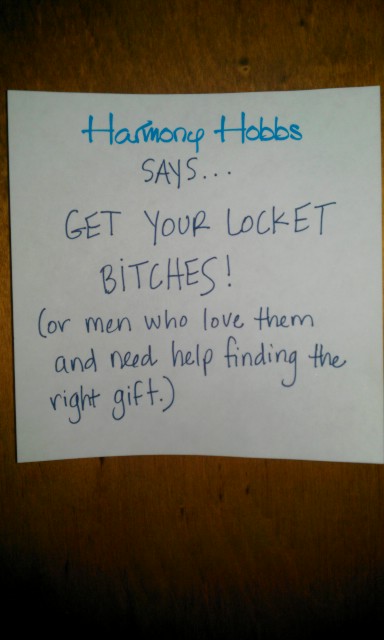 Harmony Hobbs
SAYS...
GET YOUR LOCKET
BITCHES!
(or men who love them
and need help finding the
right gift.)